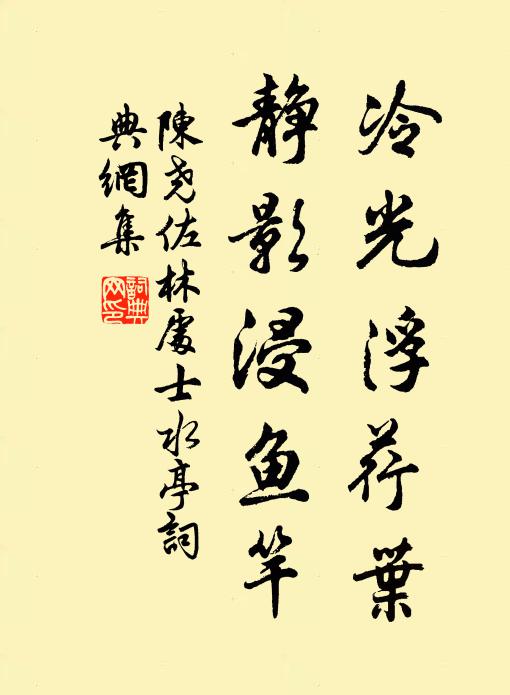 冷光浮荇葉
静影浸鱼竿
陳尧佐林處士水亭詞
典網集
詞典網印